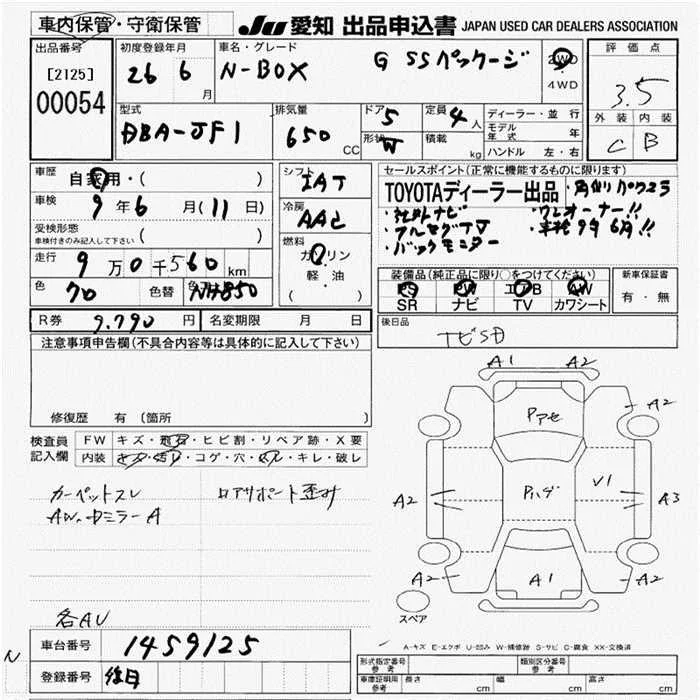 車内保管・守衛保管
JU 愛知 出品申込書 JAPAN USED CAR DEALERS ASSOCIATION
出品番号
[2125]
00054
初度登録年月
26 6 月
車名・グレード
N-BOX G SSパッケージ
2WD
4WD
評価点
3.5
外装 内装
C B
型式
DBA-JF1
排気量
650 CC
ドア 5
形状
定員 4 人
積載 kg
ディーラー・並行
モデル年式 年
ハンドル 左・右
車歴 自家用・( )
車検 9 年 6 月 (11 日)
受検形態
車検付きのみ記入して下さい ( )
走行 9 万 0 千 560 km
色 70 色替 NH850
シフト IAT
冷房 AAC
燃料
ガソリン
軽・油
( )
セールスポイント(正常に機能するものに限ります)
TOYOTAディーラー出品
・社外ナビ ・ワンオーナー!!
・フルセグTV ・車検9年6月!!
・バックモニター
装備品(純正品に限り○をつけてください)
PS PW エアB AW
SR ナビ TV カワシート
新車保証書
有・無
R券 9.790 円 名変期限 月 日
後日品
注意事項申告欄(不具合内容等は具体的に記入して下さい)
修復歴 有 (箇所
検査員記入欄
FW キズ・飛石・ヒビ割・リペア跡・X要
内装 キズ・汚れ・コゲ・穴・ ・キレ・破レ
カーペットスレ
AW・ドミラーA
ロアサポート歪み
各AU
A1 A2
A2
A2
V1
A3
A2 A1 A2
スペア
A-キズ E-エクボ U-凹み W-補修跡 S-サビ C-腐食 XX-交換済
N
車台番号 1459125
登録番号 後日
形式指定番号 参考
類別区分番号 参考
車庫証明用 参考 長さ cm 幅 cm 高さ cm